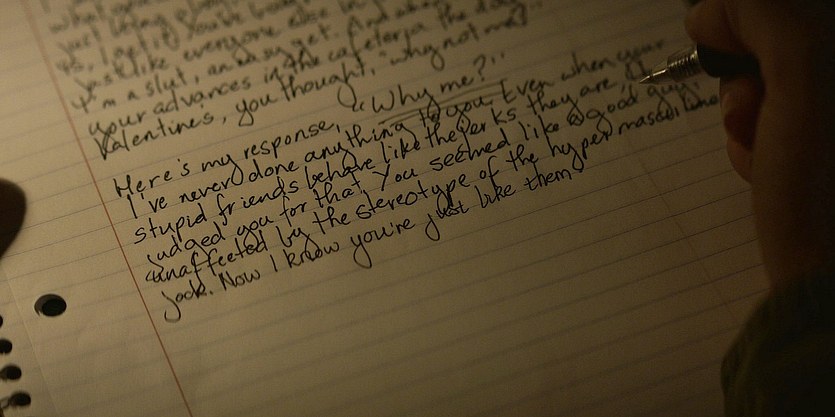 just like everyone else in
I'm a slut, an easy get. And when
your advances in the cafeteria the day
Valentines, you thought, "why not me?".
Here's my response, "Why me?".
I've never done anything to you. Even when your
stupid friends behave like the jerks they are, I
judged you for that. You seemed like a good guy.
unaffected by the stereotype of the hyper masculine
jock. Now I know you're just like them.